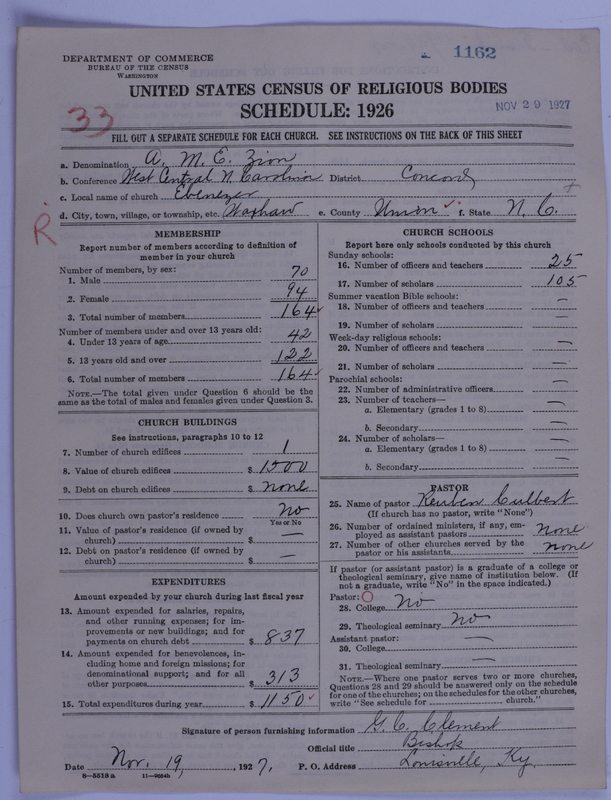 DEPARTMENT OF COMMERCE
BUREAU OF THE CENSUS
WASHINGTON
1162
UNITED STATES CENSUS OF RELIGIOUS BODIES
SCHEDULE: 1926
NOV 29 1927
33
FILL OUT A SEPARATE SCHEDULE FOR EACH CHURCH. SEE INSTRUCTIONS ON THE BACK OF THIS SHEET
a. Denomination A. M. E. Zion
b. Conference West Central N. Carolina District Concord
c. Local name of church Ebenezer
d. City, town, village, or township, etc. Waxhaw e. County Union f. State N. C.
R
MEMBERSHIP
Report number of members according to definition of
member in your church
Number of members, by sex:
1. Male 70
2. Female 94
3. Total number of members 164
Number of members under and over 13 years old:
4. Under 13 years of age 42
5. 13 years old and over 122
6. Total number of members 164
NOTE.—The total given under Question 6 should be
same as the total of males and females given under Question 3.
CHURCH BUILDINGS
See instructions, paragraphs 10 to 12
7. Number of church edifices 1
8. Value of church edifices $ 1500
9. Debt on church edifices $ none
10. Does church own pastor's residence? No
Yes or No
11. Value of pastor's residence (if owned by
church) $ —
12. Debt on pastor's residence (if owned by
church) $ —
EXPENDITURES
Amount expended by your church during last fiscal year
13. Amount expended for salaries, repairs,
and other running expenses; for im-
provements or new buildings; and for
payments on church debt $ 837
14. Amount expended for benevolences, in-
cluding home and foreign missions; for
denominational support; and for all
other purposes $ 313
15. Total expenditures during year $ 1150
CHURCH SCHOOLS
Report here only schools conducted by this church
Sunday schools:
16. Number of officers and teachers 25
17. Number of scholars 105
Summer vacation Bible schools:
18. Number of officers and teachers —
19. Number of scholars —
Week-day religious schools:
20. Number of officers and teachers —
21. Number of scholars —
Parochial schools:
22. Number of administrative officers —
23. Number of teachers—
a. Elementary (grades 1 to 8) —
b. Secondary —
24. Number of scholars—
a. Elementary (grades 1 to 8) —
b. Secondary —
PASTOR
25. Name of pastor Reuben Culbert
(If church has no pastor, write "None")
26. Number of ordained ministers, if any, em-
ployed as assistant pastors none
27. Number of other churches served by the
pastor or his assistants none
If pastor (or assistant pastor) is a graduate of a college or
theological seminary, give name of institution below. (If
not a graduate, write "No" in the space indicated.)
Pastor:
28. College No
29. Theological seminary no
Assistant pastor:
30. College —
31. Theological seminary —
NOTE.—Where one pastor serves two or more churches,
Questions 28 and 29 should be answered only on the schedule
for one of the churches; on the schedules for the other churches,
write "See schedule for church."
Signature of person furnishing information G. C. Clement
Official title Bishop
Date Nov. 19, 1927. P. O. Address Louisville, Ky.